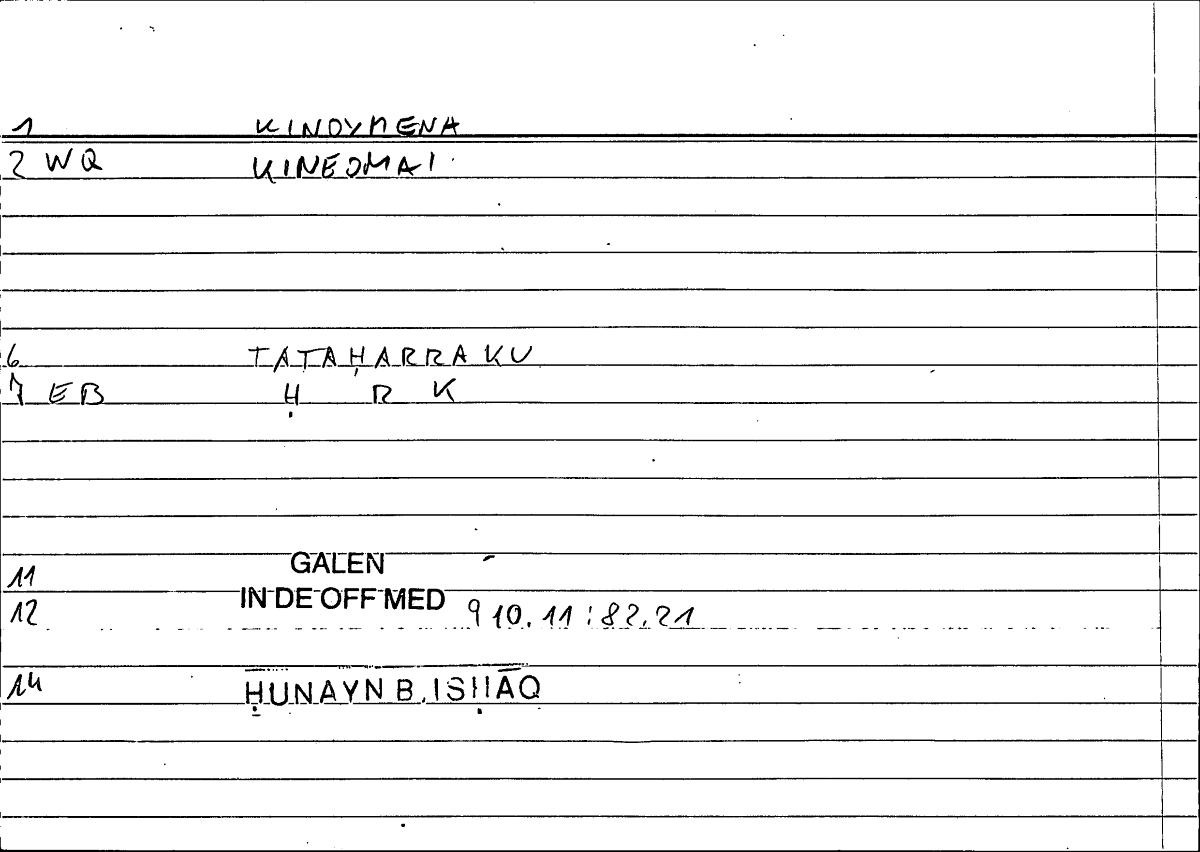 1 KINOYMENA
2 WQ KINEOMAI
6 TATAḤARRAKU
7 EB Ḥ R K
GALEN
11
IN DE OFF MED
12 910.11:82.21
14 ḤUNAYN B. ISḤĀQ